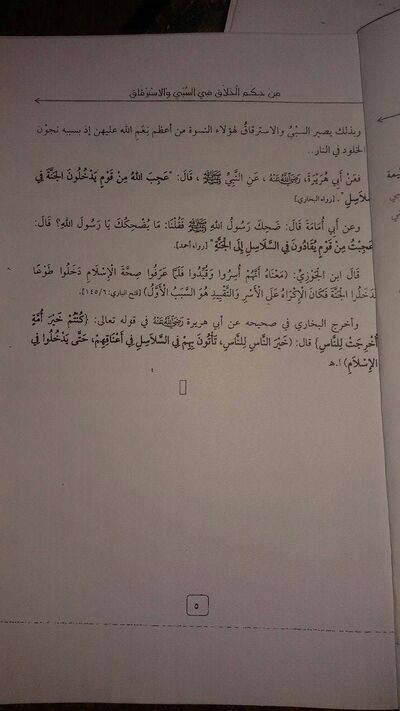 من حكم الخلاق في السَّبْي والاسترقاق
وبذلك يصير السبْيُ والاسترقاقُ لهؤلاء النسوة من أعظم نِعَمِ الله عليهن إذ بسببه نجوْنَ
الخلود في النار..
فعَنْ أَبِي هُرَيْرَةَ، رَضِيَ اللَّهُ عَنْهُ ، عَنِ النَّبِيِّ ﷺ ، قَالَ: "عَجِبَ اللَّهُ مِنْ قَوْمٍ يَدْخُلُونَ الجَنَّةَ فِي
سَّلَاسِلِ". [رواه البخاري]
وعن أبي أُمَامَةَ قَالَ: ضَحِكَ رَسُولُ اللهِ ﷺ فَقُلْنَا: مَا يُضْحِكُكَ يَا رَسُولَ اللهِ؟ قَالَ:
عَجِبْتُ مِنْ قَوْمٍ يُقَادُونَ فِي السَّلَاسِلِ إِلَى الجَنَّةِ" [رواه أحمد].
قَالَ ابن الجَوْزِيِّ: (مَعْنَاهُ أَنَّهُمْ أُسِرُوا وَقُيِّدُوا فَلَمَّا عَرَفُوا صِحَّةَ الْإِسْلَامِ دَخَلُوا طَوْعًا
دَخَلُوا الجَنَّةَ فَكَانَ الْإِكْرَاهُ عَلَى الْأَسْرِ وَالتَّقْيِيدِ هُوَ السَّبَبُ الْأَوَّلُ) [فتح الباري: ١٤٥/٦]
وأخرج البخاري في صحيحه عن أبي هريرة رَضِيَ اللَّهُ عَنْهُ في قوله تعالى: {كُنْتُمْ خَيْرَ أُمَّةٍ
أُخْرِجَتْ لِلنَّاسِ} قال: (خَيْرَ النَّاسِ لِلنَّاسِ، تَأْتُونَ بِهِمْ فِي السَّلَاسِلِ فِي أَعْنَاقِهِمْ، حَتَّى يَدْخُلُوا فِي
الإِسْلَامِ) ا.هـ
٥